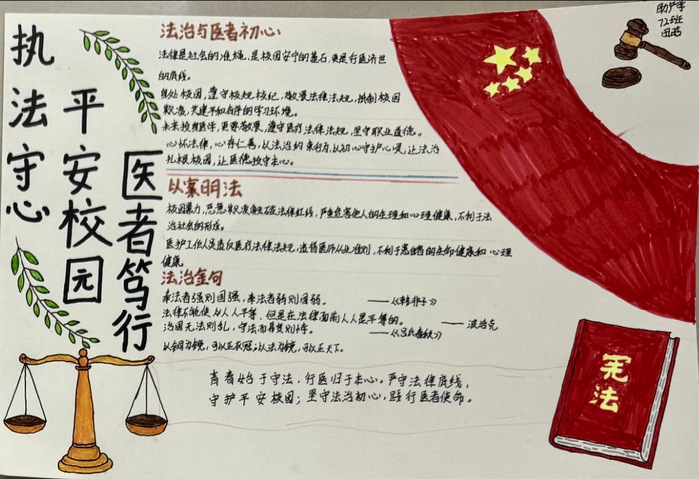 执法守心
平安校园
医者笃行
法治与医者初心
法律是社会的准绳,是校园安宁的基石,更是行医济世
的底线。
身处校园,遵守校规校纪,敬畏法律法规,抵制校园
欺凌,共建平和有序的学习环境。
未来投身医学,更要敬畏,遵守医疗法律法规,坚守职业道德。
心怀法律,心存仁善,以法治约束行为,以初心守护心灵,让法治
扎根校园,让医德独守本心。
以案明法
校园暴力,恶意欺凌触碰法律红线,严重危害他人的生理和心理健康,不利于法
治社会的形成。
医护工作人员违反医疗法律法规,违背医师从业准则,不利于患者的生命健康和心理
健康。
法治金句
奉法者强则国强,奉法者弱则国弱。 ——《韩非子》
法律不能使人人平等,但是在法律面前人人是平等的。 ——波洛克
治国无法则乱,守法而弗变则悖。 ——《吕氏春秋》
以铜为镜,可以正衣冠;以法为镜,可以正天下。
青春始于守法,行医归于本心。严守法律底线,
守护平安校园;坚守法治初心,践行医者使命。
助产学
宪法